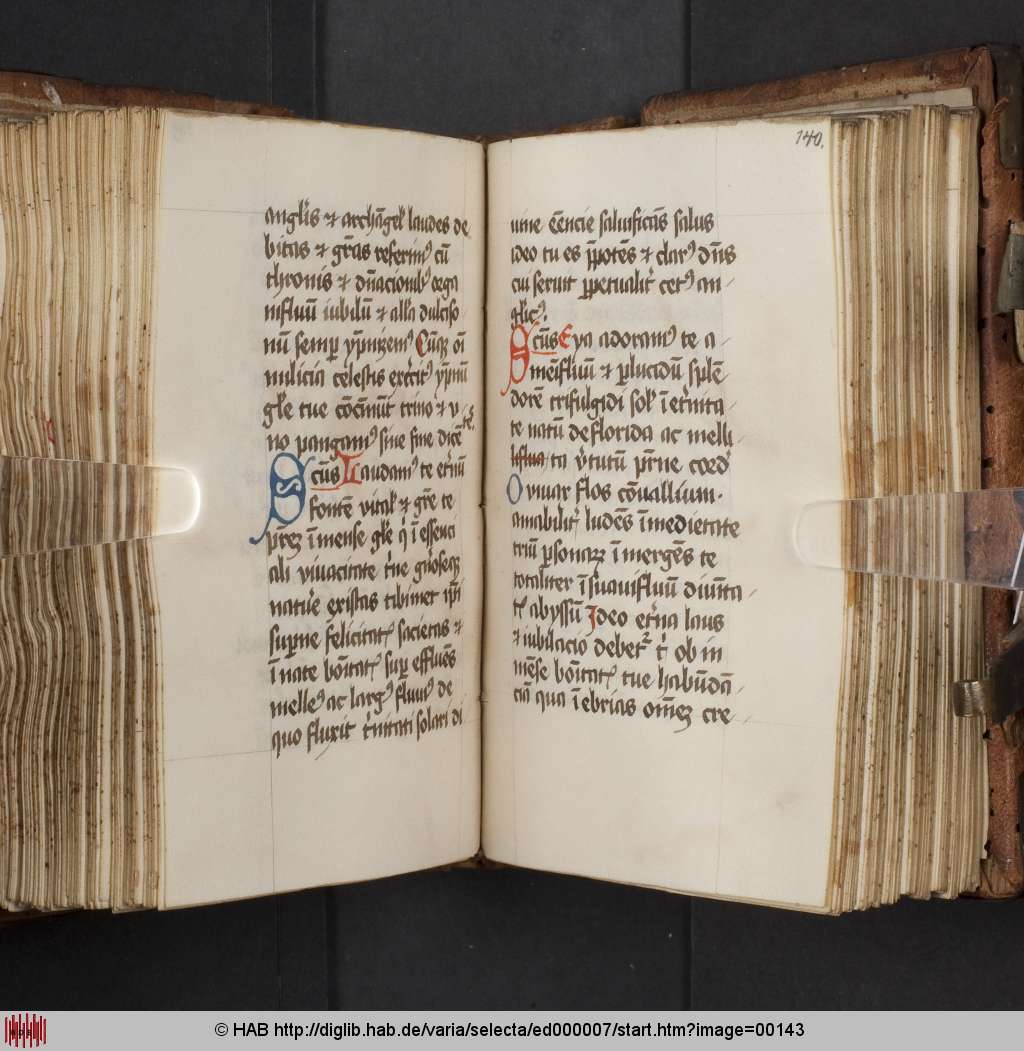 anglis et archāgel laudes de
bitas et grās referim⁹ cū
thronis et dn̄acionib⁹ eega
nifluū iubilū et alla dulciso
nū semp ym̄nizem⁹ Cūqꝫ oī
milicia celestis exercit⁹ ym̄nū
gle tue cōcinūt trino et v
no pangam⁹ sine fine dicētes
Scūs Laudam⁹ te etnū
fontē vital et grē te
prēꝫ īmense gle q ī essenci
ali viuacitate tne gn̄oseqꝫ
nature existas tibimet ipi
supne felicitat sacietas et
īnate bōitat sup effluēs
melle⁹ ac larg⁹ fluui⁹ de
quo fluxit tnitati solari di
140.
uine eēncie saluificās salus
ideo tu es ppotēs et clar⁹ dn̄s
cui seruit ppetualit cet⁹ an
glic⁹.
Scūs Eya adoram⁹ te a
meīfluū et plucidū splē
dorē trifulgidi sol ī etnita
te natū deflorida ac melli
liflua ta vtutū pr̄ne cord
O viuax flos cōuallium.
amabilit ludēs ī medietate
triū psonaꝝ ī mergēs te
totaliter ī suauifluū diuīta
t abyssū Ideo etna laus
et iubilacio debet t ob in
mēse bōitat tue habūdā
ciā qua ī ebrias om̄eꝫ cre
© HAB http://diglib.hab.de/varia/selecta/ed000007/start.htm?image=00143